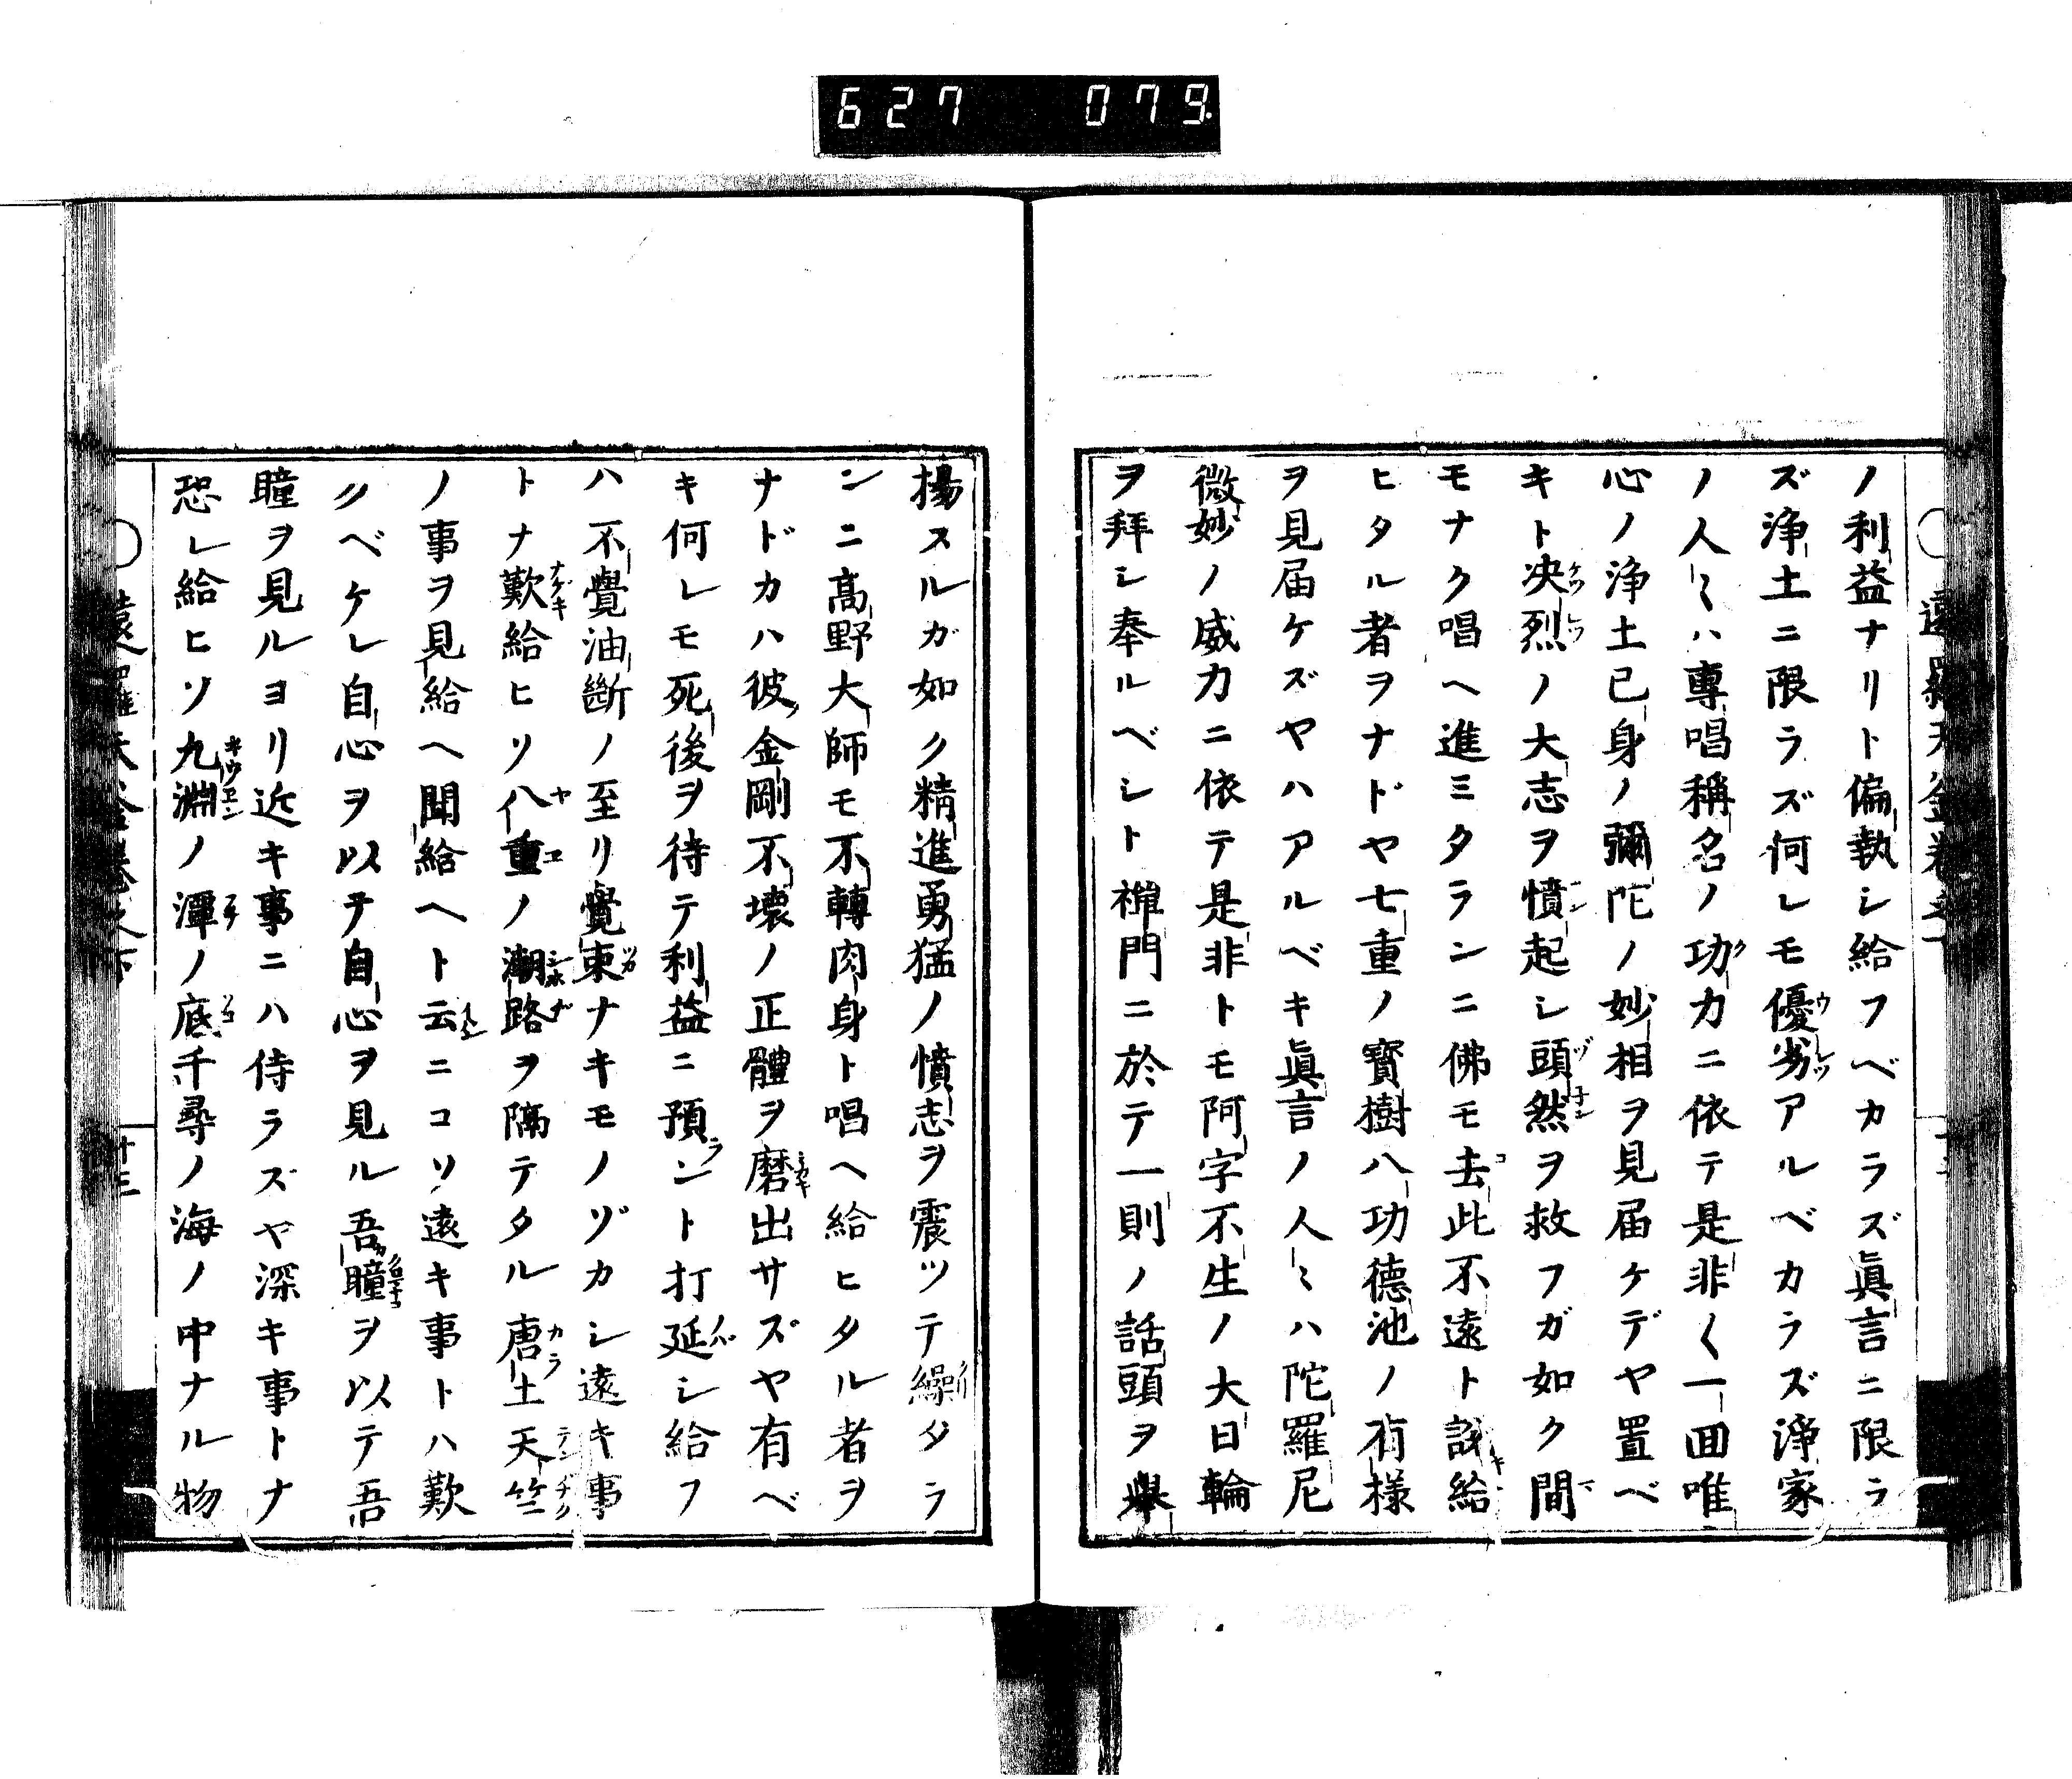 627 079
ノ利益ナリト偏執シ給フベカラズ眞言ニ限ラ
ズ淨土ニ限ラズ何レモ優劣アルベカラズ淨家
ノ人〻ハ專唱稱名ノ功力ニ依テ是非〱一回唯
心ノ淨土己身ノ彌陀ノ妙相ヲ見届ケデヤ置ベ
キト决烈ノ大志ヲ憤起シ頭然ヲ救フガ如ク間
モナク唱ヘ進ミタランニ佛モ去此不遠ト説給
ヒタル者ヲナドヤ七重ノ寳樹八功德池ノ有様
ヲ見届ケズヤハアルベキ眞言ノ人〻ハ陀羅尼
微妙ノ威力ニ依テ是非トモ阿字不生ノ大日輪
ヲ拜シ奉ルベシト禪門ニ於テ一則ノ話頭ヲ擧
揚スルガ如ク精進勇猛ノ憤志ヲ震ツテ繰タラ
ンニ高野大師モ不轉肉身ト唱ヘ給ヒタル者ヲ
ナドカハ彼金剛不壞ノ正體ヲ磨出サズヤ有ベ
キ何レモ死後ヲ待テ利益ニ預ント打延シ給フ
ハ不覺油斷ノ至リ覺束ナキモノゾカシ遠キ事
トナ歎給ヒソ八重ノ潮路ヲ隔テタル唐土天竺
ノ事ヲ見見給ヘ聞給ヘト云ニコソ遠キ事トハ歎
クベケレ自心ヲ以テ自心ヲ見ル吾瞳ヲ以テ吾
瞳ヲ見ルヨリ近キ事ニハ侍ラズヤ深キ事トナ
恐レ給ヒソ九淵ノ潭ノ底千尋ノ海ノ中ナル物